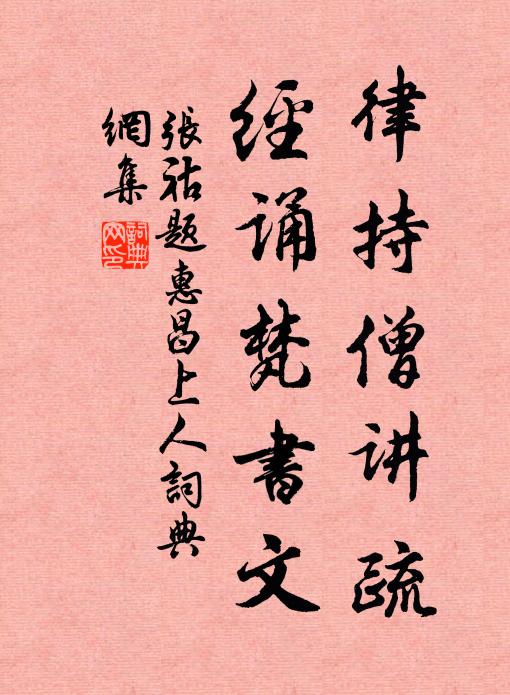 律持僧讲疏
經诵梵書文
張祜題惠昌上人詞典
網集
詞典
网印